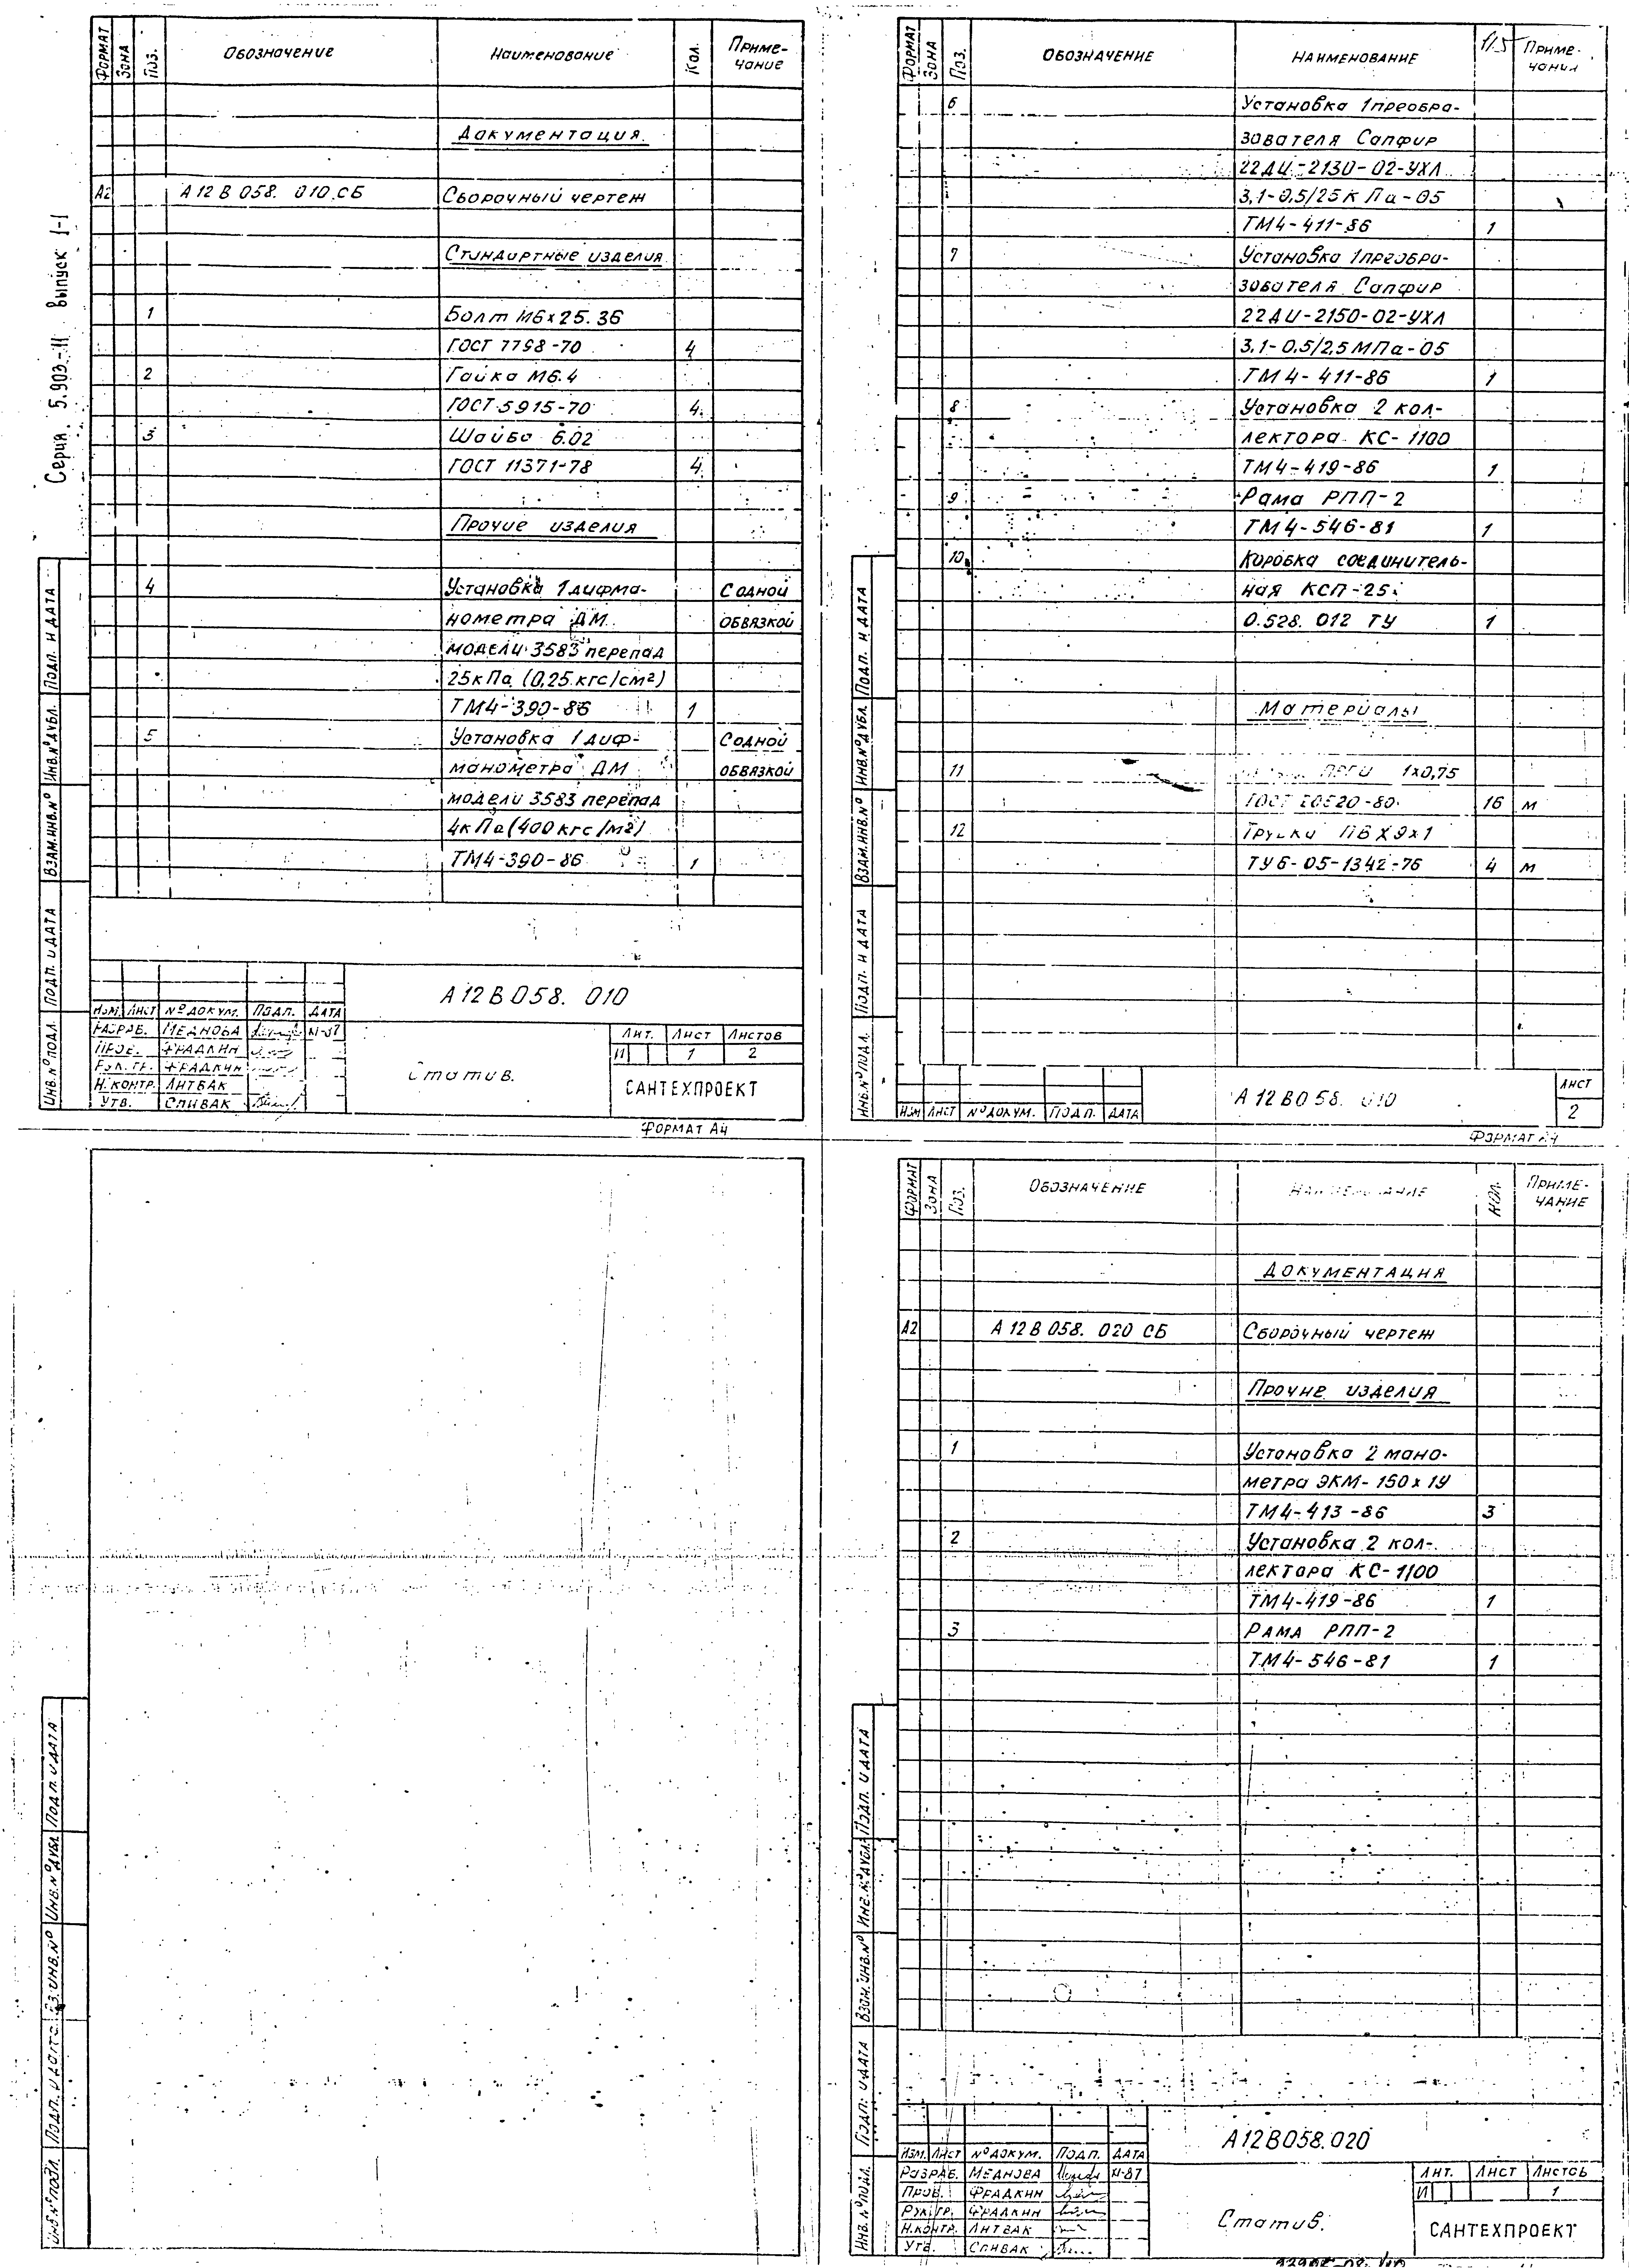 Серия 5.903-11 выпуск 1-1
ФОРМАТ ЗОНА Поз. Обозначение Наименование Кол. Приме-
чание
Документация
А2 А12В058. 010 СБ Сборочный чертеж
Стандартные изделия
1 Болт М6х25.36
ГОСТ 7798-70 4
2 Гайка М6.4
ГОСТ 5915-70 4
3 Шайба 6.02
ГОСТ 11371-78 4
Прочие изделия
4 Установка 1 дифма- С одной
нометра ДМ обвязкой
модели 3583 перепад
25кПа (0,25 кгс/см²)
ТМ4-390-86 1
5 Установка 1 диф- С одной
манометра ДМ обвязкой
модели 3583 перепад
4кПа (400 кгс/м²)
ТМ4-390-86 1
Изм. Лист № докум. Подп. Дата
Разраб. Меднова 11-87
Пров. Фрадкин
Рук. гр. Фрадкин
Н. контр. Литвак
Утв. Спивак
А12В058. 010
Статив.
Лит. Лист Листов
И 1 2
САНТЕХПРОЕКТ
Инв.№ подл. Подп. и дата Взам.инв.№ Инв.№ дубл. Подп. и дата
Формат А4
ФОРМАТ ЗОНА Поз. Обозначение Наименование Приме-
чание
6 Установка 1 преобра-
зователя Сапфир
22ДИ-2130-02-УХЛ
3,1-0,5/25кПа-05
ТМ4-411-86 1
7 Установка 1 преобра-
зователя Сапфир
22ДИ-2150-02-УХЛ
3,1-0,5/2,5МПа-05
ТМ4-411-86 1
8 Установка 2 кол-
лектора КС-1100
ТМ4-419-86 1
9 Рама РПП-2
ТМ4-546-81 1
10 Коробка соединитель-
ная КСП-25
0.528.012 ТУ 1
Материалы
11 1х0,75
ГОСТ 20520-80 16 м
12 Трубка ПВХ 9х1
ТУ6-05-1342-76 4 м
Изм Лист № докум. Подп. Дата
А12В058. 010
Лист
2
Инв.№ подл. Подп. и дата Взам.инв.№ Инв.№ дубл. Подп. и дата
Формат А4
Инв.№ подл. Подп. и дата Взам.инв.№ Инв.№ дубл. Подп. и дата
ФОРМАТ ЗОНА Поз. Обозначение Наименование Кол. Приме-
чание
Документация
А2 А12В058. 020 СБ Сборочный чертеж
Прочие изделия
1 Установка 2 мано-
метра ЭКМ-150х1У
ТМ4-413-86 3
2 Установка 2 кол-
лектора КС-1100
ТМ4-419-86 1
3 Рама РПП-2
ТМ4-546-81 1
Изм. Лист № докум. Подп. Дата
Разраб. Меднова 11-87
Пров. Фрадкин
Рук. гр. Фрадкин
Н.контр. Литвак
Утв. Спивак
А12В058.020
Статив.
Лит. Лист Листов
И 1
САНТЕХПРОЕКТ
Инв.№ подл. Подп. и дата Взам.инв.№ Инв.№ дубл. Подп. и дата